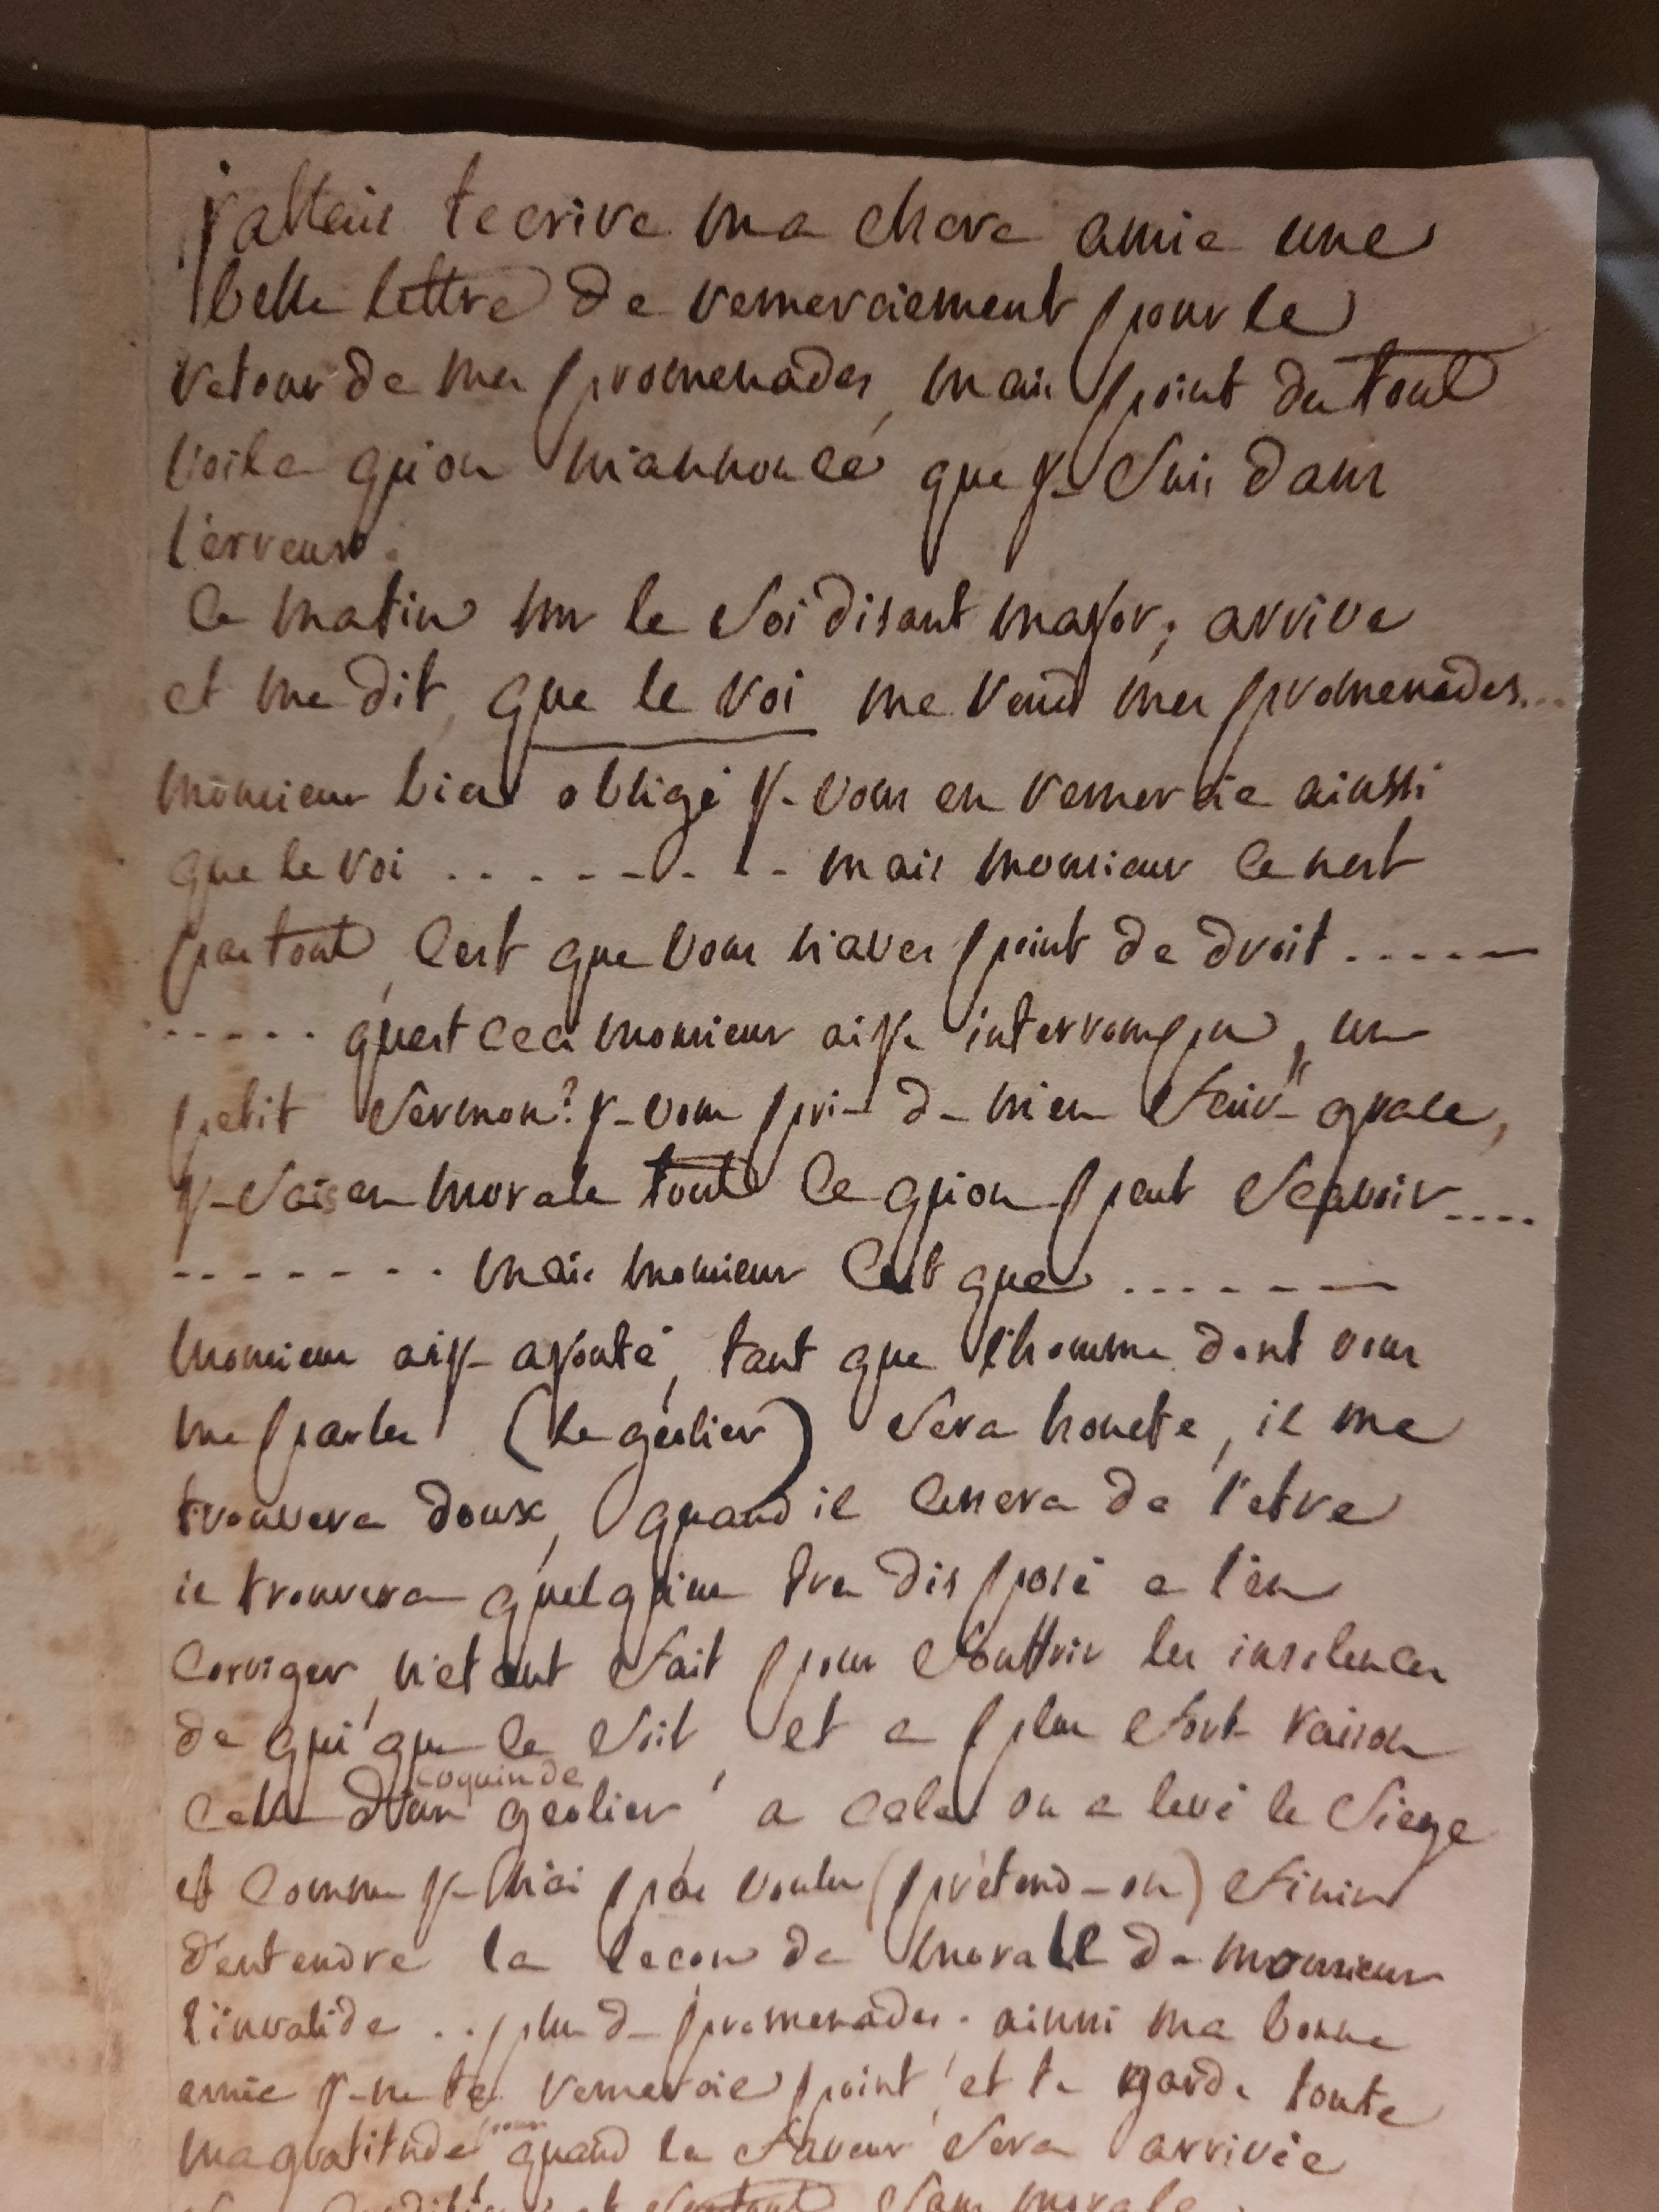 j'allais tecrire ma chere amie une
belle lettre de remerciement pour le
retour de mes promenades, mais point du tout
voila qu'on m'annonce que je suis dans
l'erreur.
ce matin mr le soi disant major, arrive
et me dit, que le roi me rend mes promenades...
monsieur bien obligé je vous en remercie ainssi
que le roi . . . - - - - . . - mais monsieur ce nest
pas tout, c'est que vous n'aves point de droit . . . . - —
. . . . . . qu'est ceci monsieur ai je interrompu, un
petit sermon? je vous prie de m'en faire grace,
je sais en morale tout ce qu'on peut scavoir ....
- - - - - - - . mais monsieur c'est que . . . - - - —
monsieur ai je ajouté, tant que l'homme dont vous
me parles (le geolier) sera honete, il me
trouvera doux, quand il cessera de l'etre
il trouvera quelqu'un tres disposé a l'en
corriger, n'etant fait pour souffrir les insolences
de qui que ce soit, et a plus forte raison
coquin de
celle d'un geolier, a cela on a levé le siege
et comme je n'ai pas voulu (prétend-on) finir
d'entendre la lecon de morale de monsieur
l'invalide . . plus de promenades. ainssi ma bonne
amie je ne te remercie point, et te garde toute
pour
ma gratitude quand la faveur sera arrivée
sans morale.